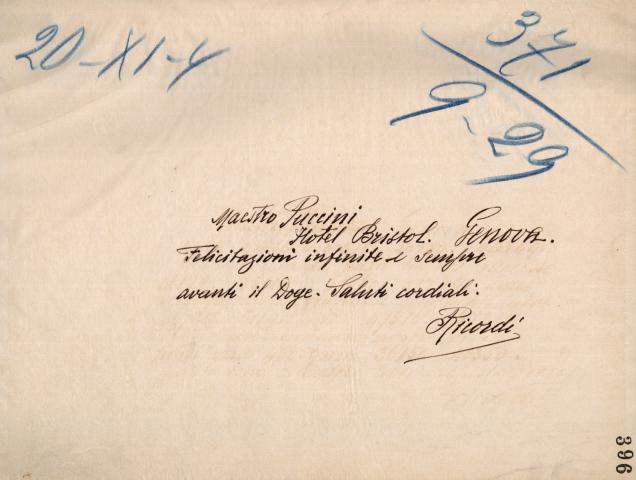 20-XI-4
371
9-29
Maestro Puccini
Hotel Bristol. Genova.
Felicitazioni infinite e sempre
avanti il Doge. Saluti cordiali.
Ricordi
396